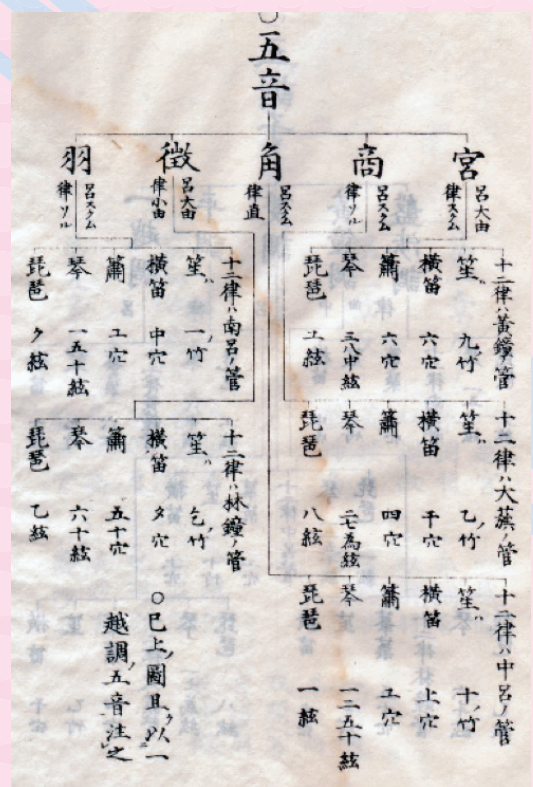 ○五音
宮
呂大由
律スクム
商
呂スクム
律ソル
角
呂スクム
律直
徴
呂大由
律小由
羽
呂スクム
律ソル
十二律ハ黃鐘ノ管
笙ハ 九ノ竹
橫笛 六穴
簫 六穴
琴 三八中絃
琵琶 ユ絃
十二律ハ大蔟ノ管
笙ハ 乙ノ竹
橫笛 干穴
簫 四穴
琴 二七為絃
琵琶 八絃
十二律ハ中呂ノ管
笙ハ 十ノ竹
橫笛 上穴
簫 エ穴
琴 一二五十絃
琵琶 一絃
十二律ハ南呂ノ管
笙ハ 一ノ竹
橫笛 中穴
簫 エ穴
琴 一五十絃
琵琶 ク絃
十二律ハ林鐘ノ管
笙ハ 乞ノ竹
橫笛 夕穴
簫 五十穴
琴 六十絃
琵琶 乙絃
○已上ノ圖且ク以一
越調ノ五音注之